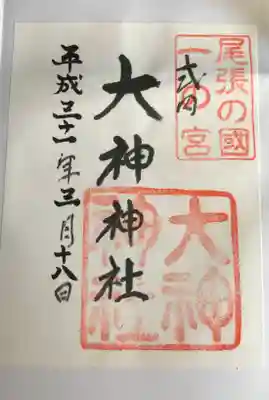 尾張の國
一の宮
式内
大神神社
大神
神社
平成三十一年三月十八日